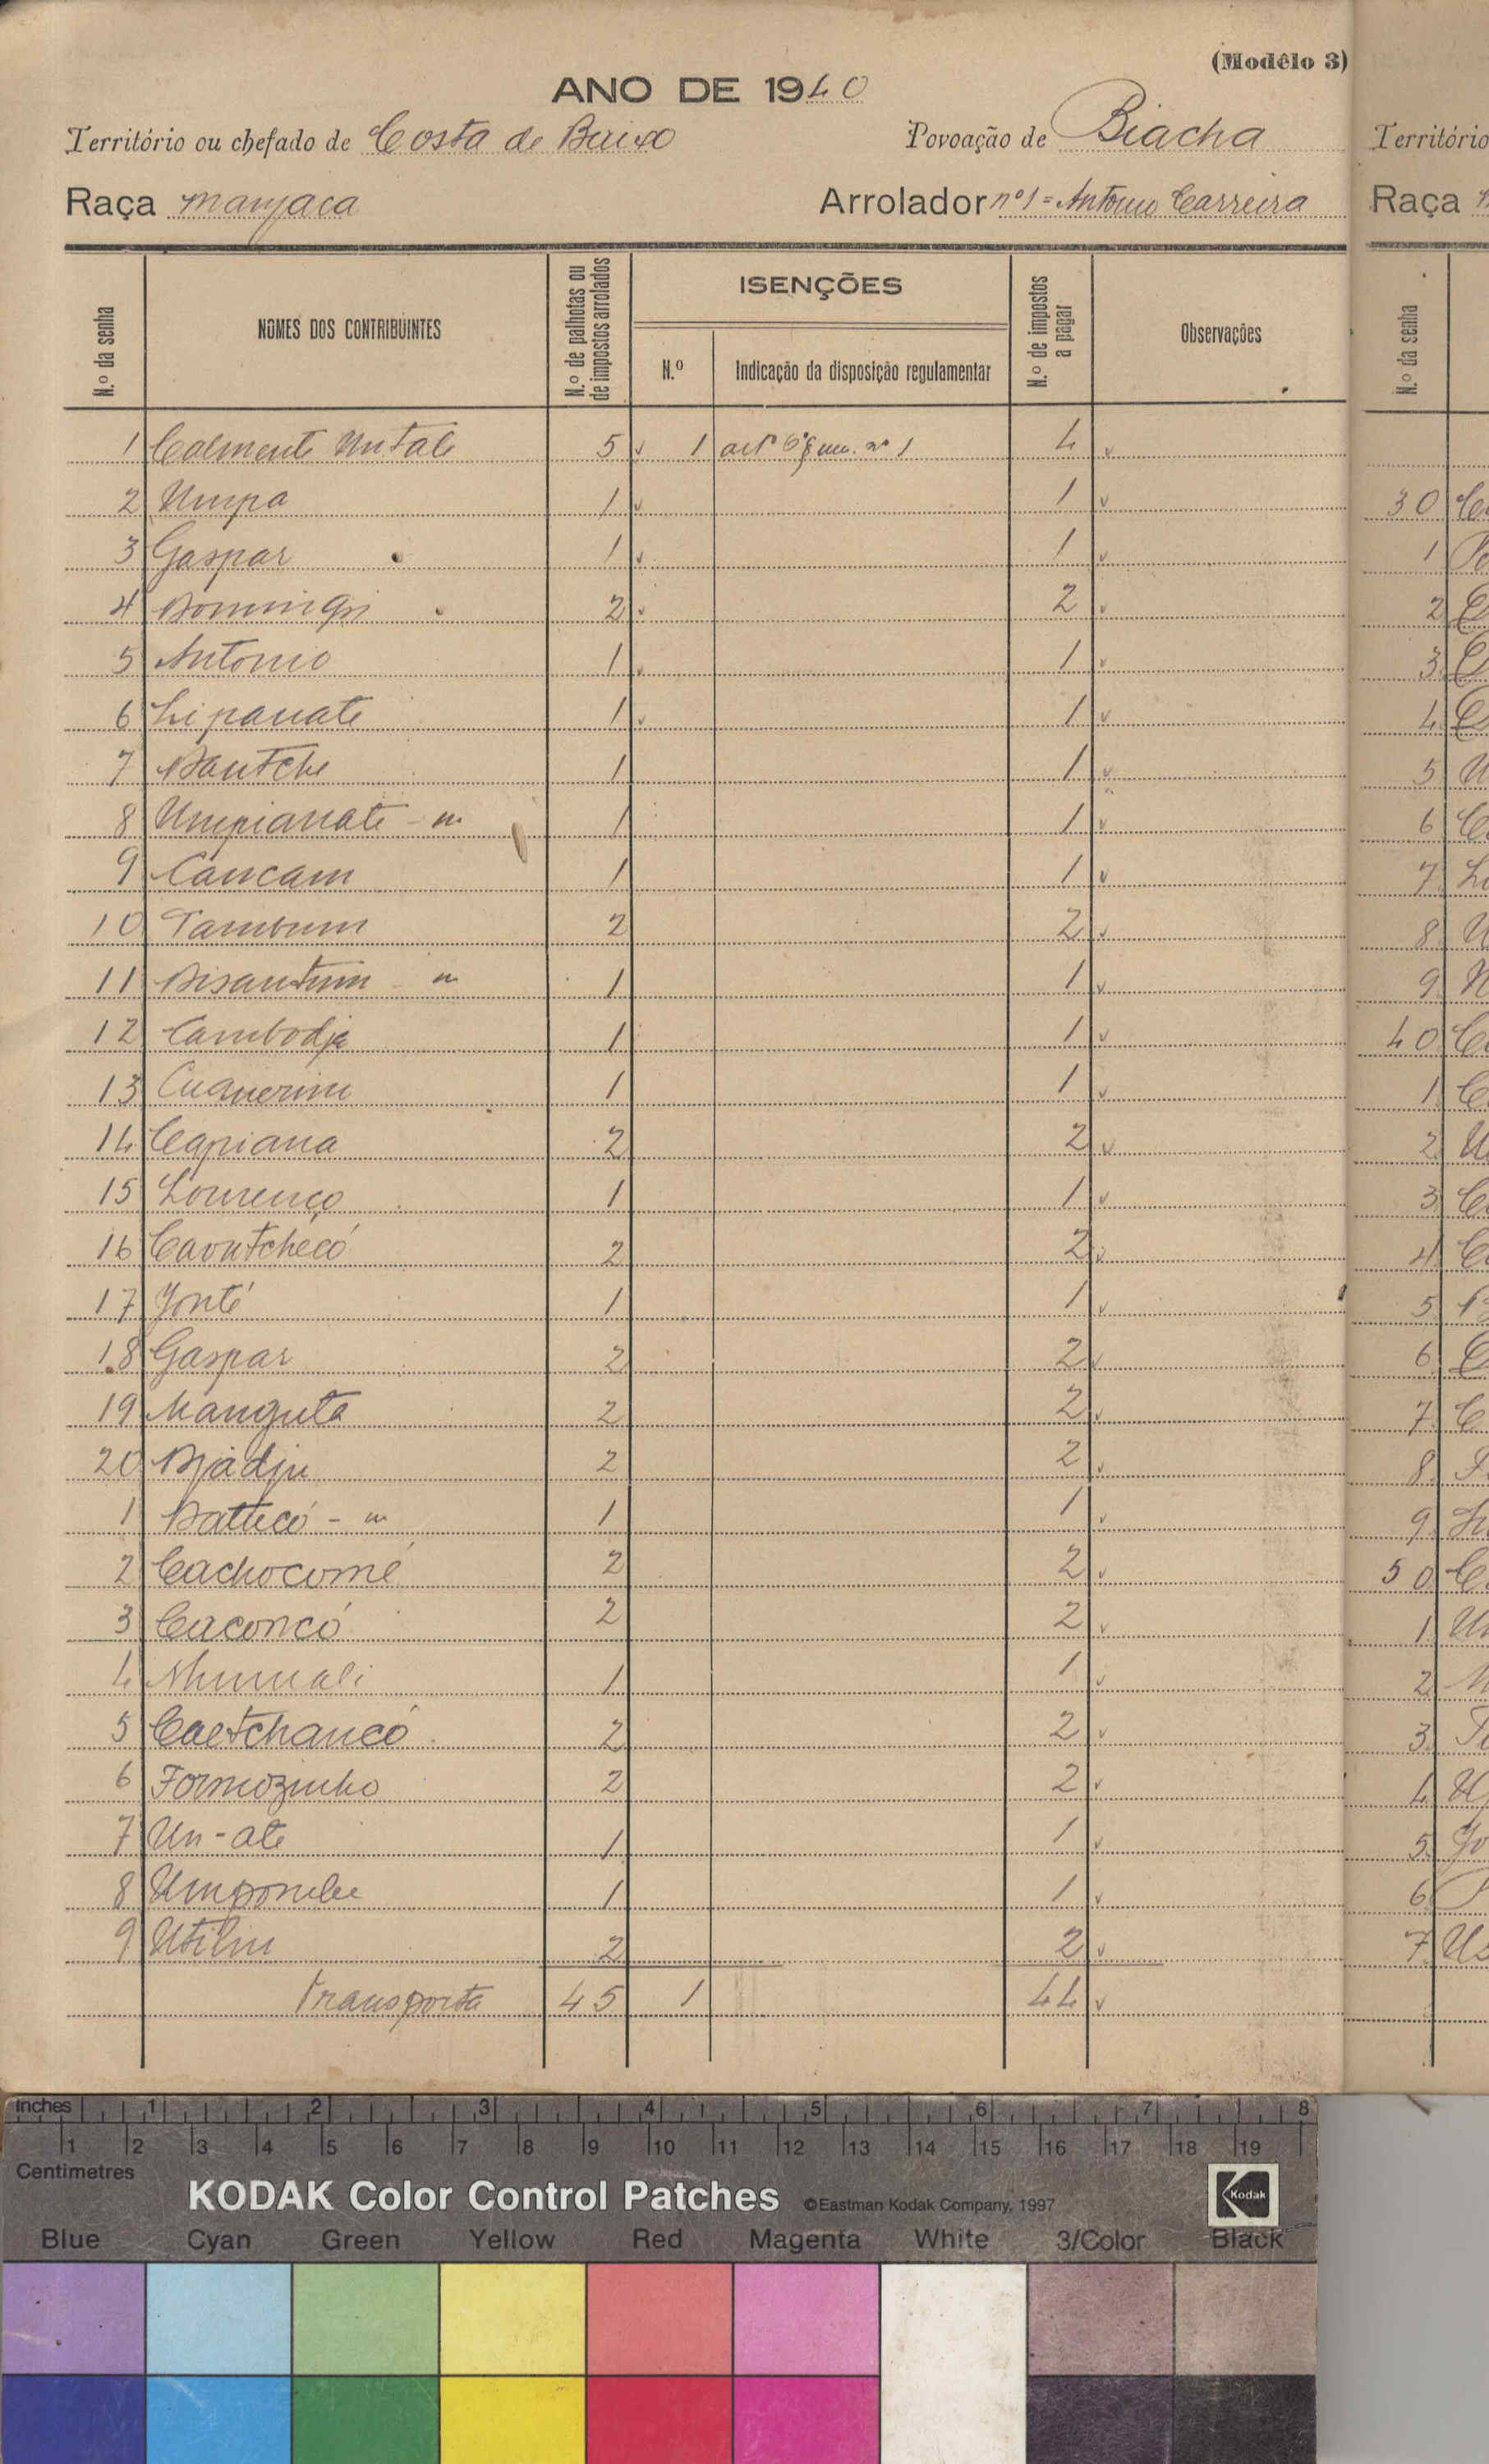 (Modêlo 3)
ANO DE 1940
Território ou chefado de Costa de Baixo Povoação de Biacha
Raça manjaca Arrolador nº1 = Antonio Carreira
N.º da senha
NOMES DOS CONTRIBUINTES
N.º de palhotas ou de impostos arrolados
ISENÇÕES
N.º
Indicação da disposição regulamentar
N.º de impostos a pagar
Observações
1 Calmente Untale 5 1 artº 6º nº 1 4
2 Umpa 1 1
3 Gaspar 1 1
4 Domingos 2 2
5 Antonio 1 1
6 Lipanate 1 1
7 Bantche 1 1
8 Umpianate - m 1 1
9 Cancam 1 1
10 Tambum 2 2
11 Bisantum - m 1 1
12 Cambodje 1 1
13 1 1
14 Capiana 2 2
15 Lourenço 1 1
16 Cavutchecó 2 2
17 Jonté 1 1
18 Gaspar 2 2
19 Manguta 2 2
20 Bjadju 2 2
1 Battecó - m 1 1
2 Cachocomé 2 2
3 Caconcó 2 2
4 1 1
5 Caetchancó 2 2
6 Formozinho 2 2
7 Un-ate 1 1
8 Umpombe 1 1
9 Utilim 2 2
Transporta 45 1 44
Território
Raça
N.º da senha
30
1
2
3
4
5
6
7
8
9
40
1
2
3
4
5
6
7
8
9
50
1
2
3
4
5
6
7
inches 1 2 3 4 5 6 7 8
1 2 3 4 5 6 7 8 9 10 11 12 13 14 15 16 17 18 19
Centimetres
KODAK Color Control Patches ©Eastman Kodak Company, 1997 Kodak
Blue Cyan Green Yellow Red Magenta White 3/Color Black